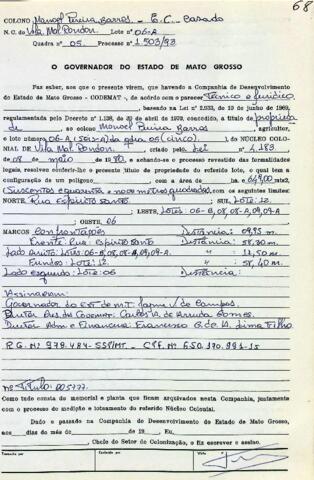 68
COLONO Manoel Pereira Barros - E.C. Casado
N.C. de Vila Mal. Rondon. Lote nº 06-A
Quadra nº 05. Processo nº 1.503/83
O GOVERNADOR DO ESTADO DE MATO GROSSO
Faz saber, aos que o presente virem, que havendo a Companhia de Desenvolvimento
do Estado de Mato Grosso - CODEMAT -, de acôrdo com o parecer Técnico e Jurídico
, baseado na Lei nº 2.933, de 19 de junho de 1969,
regulamentada pelo Decreto nº 1.138, de 29 de abril de 1970, concedido, a título de propriedade
de, ao colono Manoel Pereira Barros, agricultor,
o lote número 06-A (seis-A) da qdra 05 (cinco), do NÚCLEO COLO-
NIAL DE Vila Mal. Rondon. criado pela Lei nº 4.183.
de 08 de maio de 1980, e achando-se o processo revestido das formalidades
legais, resolvem conferir-lhe o presente título de propriedade do referido lote, o qual tem a
configuração de um polígono com a área de 649,00 mts2,
(Seiscentos e quarenta e nove metros quadrados, com os seguintes limites:
NORTE, Rua Espírito Santo SUL: Lote: 12.
LESTE, Lotes 06-B, 08, 08-A, 09, 09-A
OESTE, 06
MARCOS Confrontações Distância: 09,95 m.
Frente: Rua: Espírito Santo Distância: 58,20 m.
Lado direito: Lotes: 06-B, 08, 08-A, 09, 09-A " 12,50 m.
Fundos: Lote: 12. " 58,40 m.
Lado esquerdo: Lote: 06 Distância:
Assinaram:
Governador do Est. de M.T. Jayme V. de Campos.
Diretor Pres. da Codemat: Carlos A. de Arruda Gomes.
Diretor Adm. e Financeiro: Francisco G. de A. Lima Filho
R.G. Nº 978.484-SSP/MT - CPF. Nº 650.170.991-15
Nº Título: 005777.
Como tudo consta do memorial e planta que ficam arquivados nesta Companhia, juntamente
com o processo de medição e loteamento do referido Núcleo Colonial.
Dado e passado na Companhia de Desenvolvimento do Estado de Mato Grosso,
aos dias do mês de de 19
, Chefe do Setor de Colonização, o fiz escrever e assino.
Transcrito por Conferido por Visto